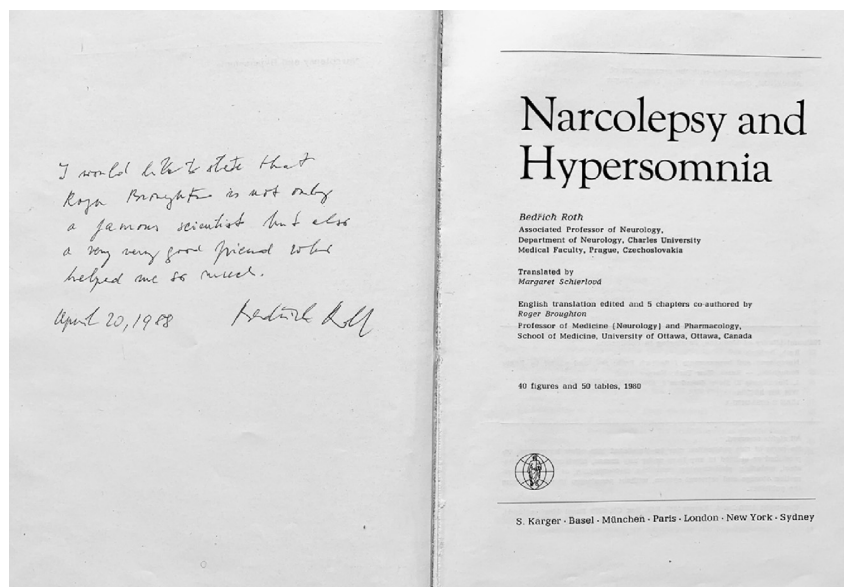 I would like to state that
Roger Broughton is not only
a famous scientist but also
a very very good friend who
helped me so much.
April 20, 1988 Bedřich Roth
Narcolepsy and
Hypersomnia
Bedřich Roth
Associated Professor of Neurology,
Department of Neurology, Charles University
Medical Faculty, Prague, Czechoslovakia
Translated by
Margaret Schierlová
English translation edited and 5 chapters co-authored by
Roger Broughton
Professor of Medicine (Neurology) and Pharmacology,
School of Medicine, University of Ottawa, Ottawa, Canada
40 figures and 50 tables, 1980
S. Karger · Basel · München · Paris · London · New York · Sydney